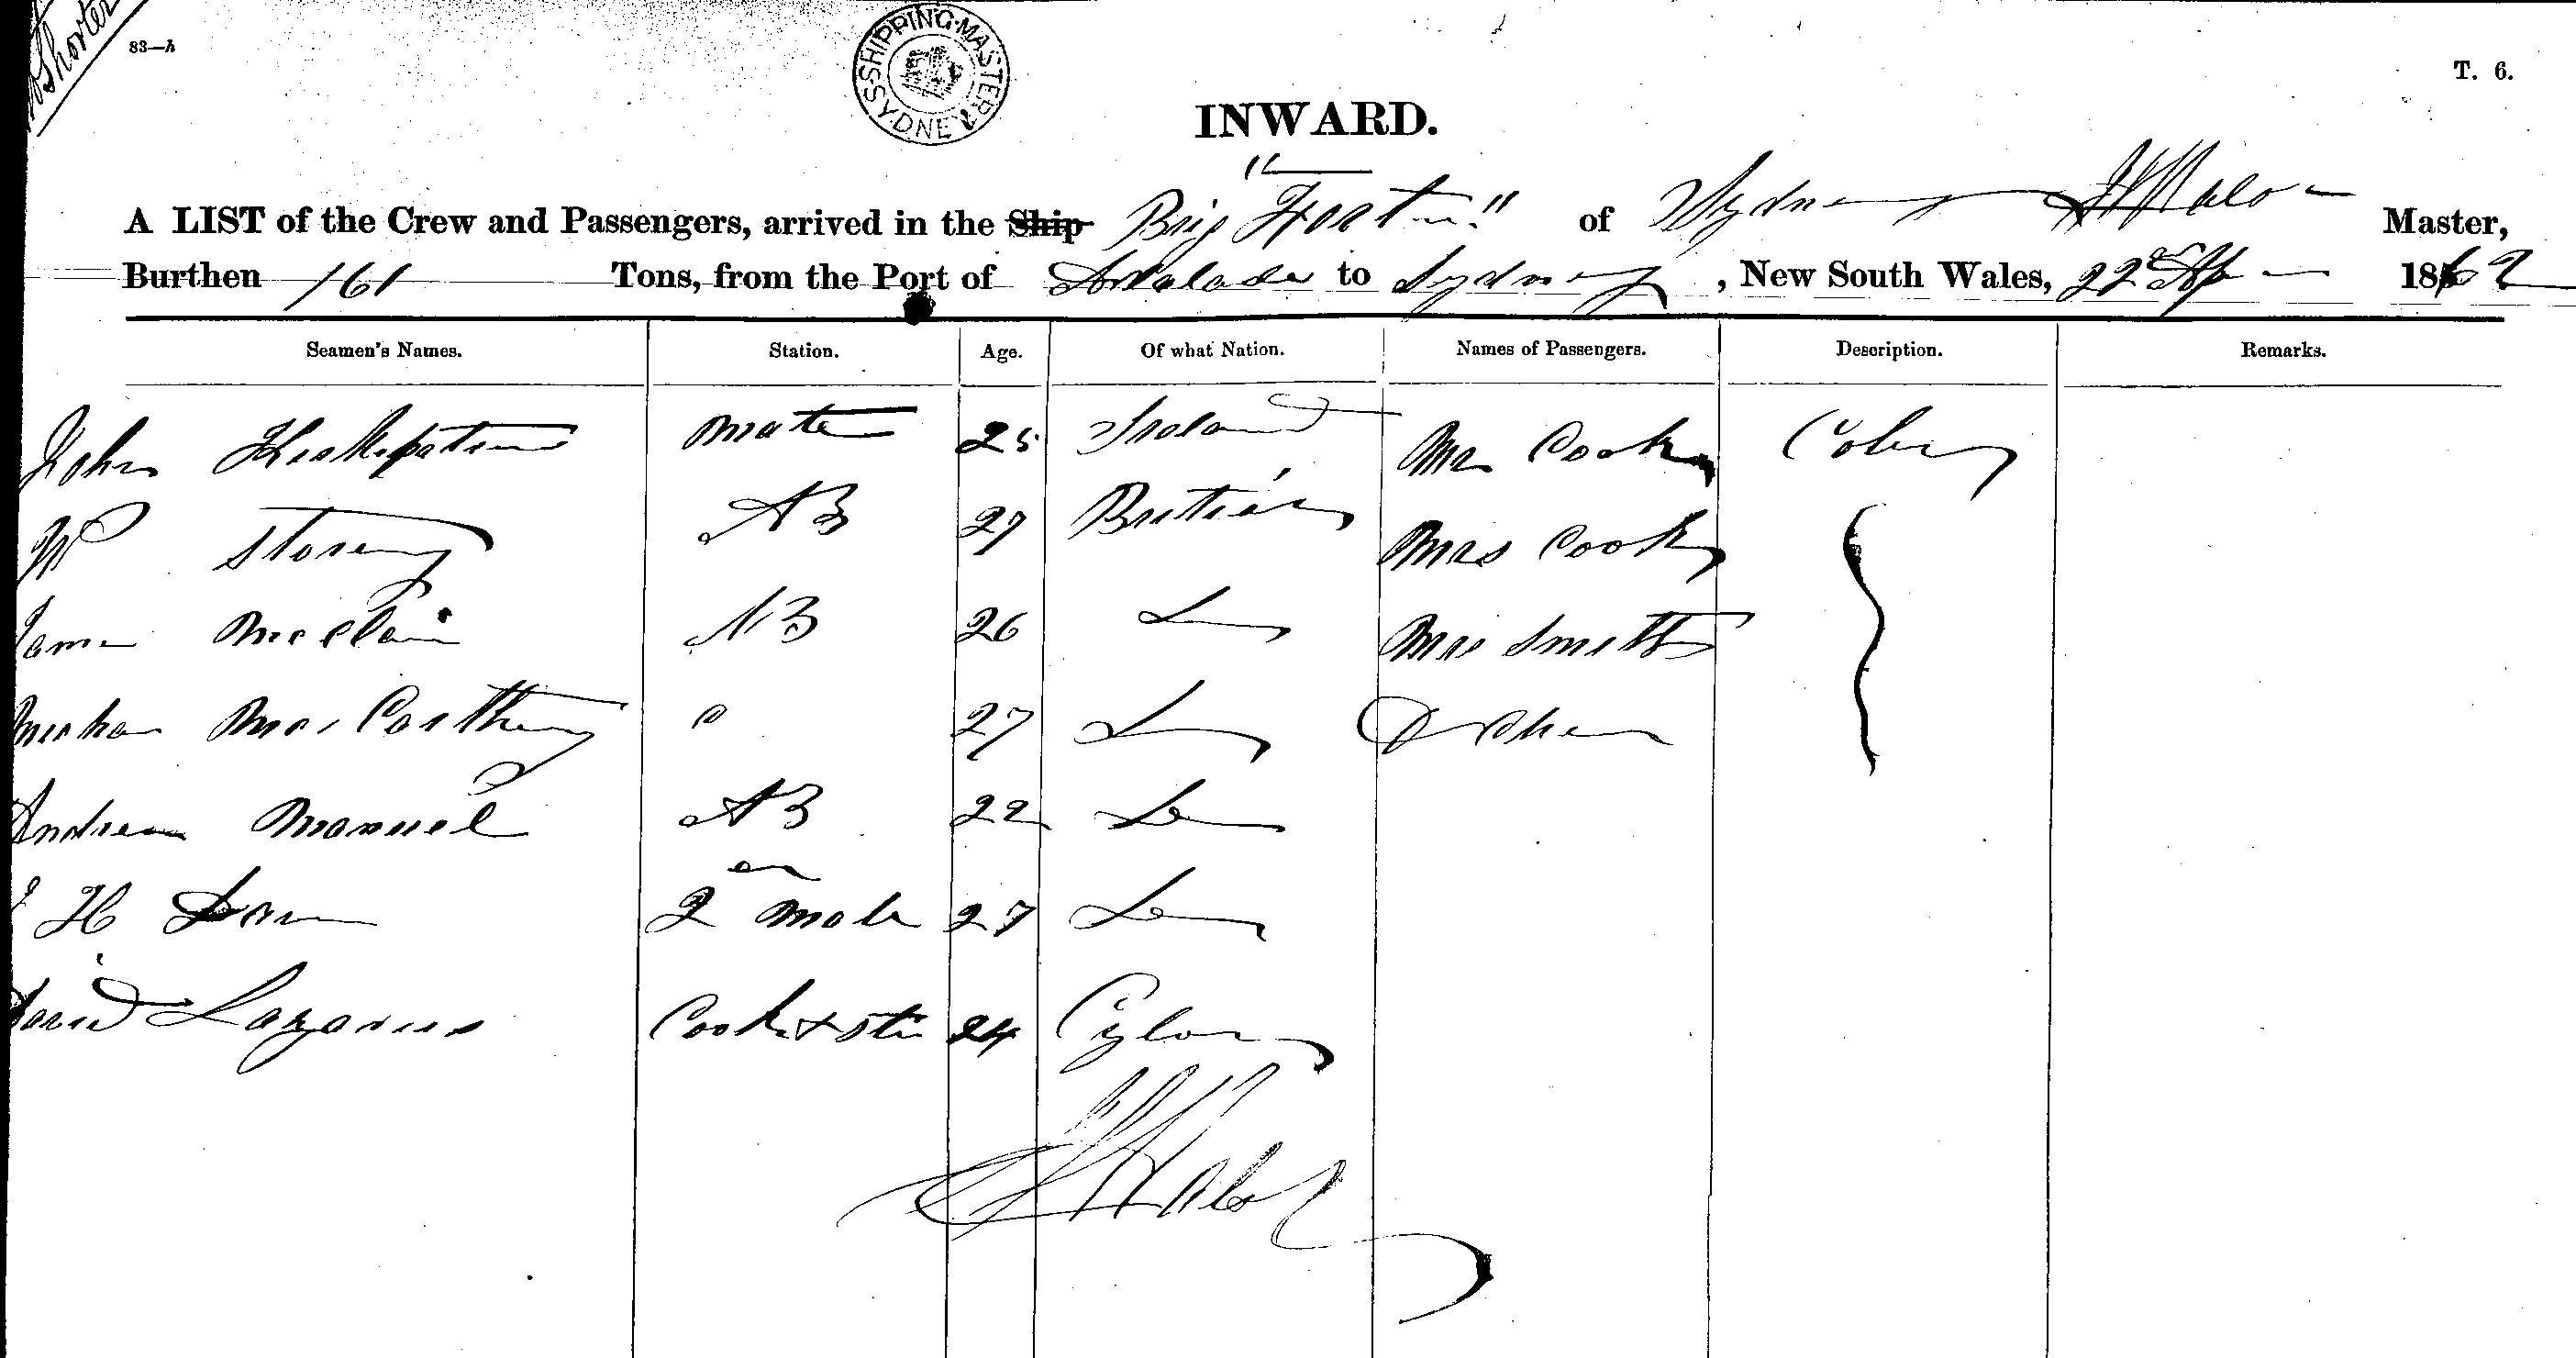 Shorter
83—h
SHIPPING MASTER SYDNEY
T. 6.
INWARD.
A LIST of the Crew and Passengers, arrived in the Ship Brig of Sydney Master,
Burthen 161 Tons, from the Port of Adelaide to Sydney, New South Wales, 22d 1862
Seamen's Names. Station. Age. Of what Nation. Names of Passengers. Description. Remarks.
John mate 25 Ireland Mr Cook Cabin
Wm Storey AB 27 British Mrs Cook
James McClain AB 26 Do Mrs Smith
Michael McCarthy 27 Do Orphan
Andrew Manuel AB 22 Do
H 2 mate 27 Do
David Lazarus Cook & Ste 24 Ceylon